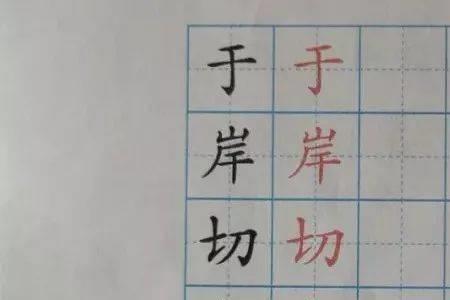 于 于
岸 岸
切 切